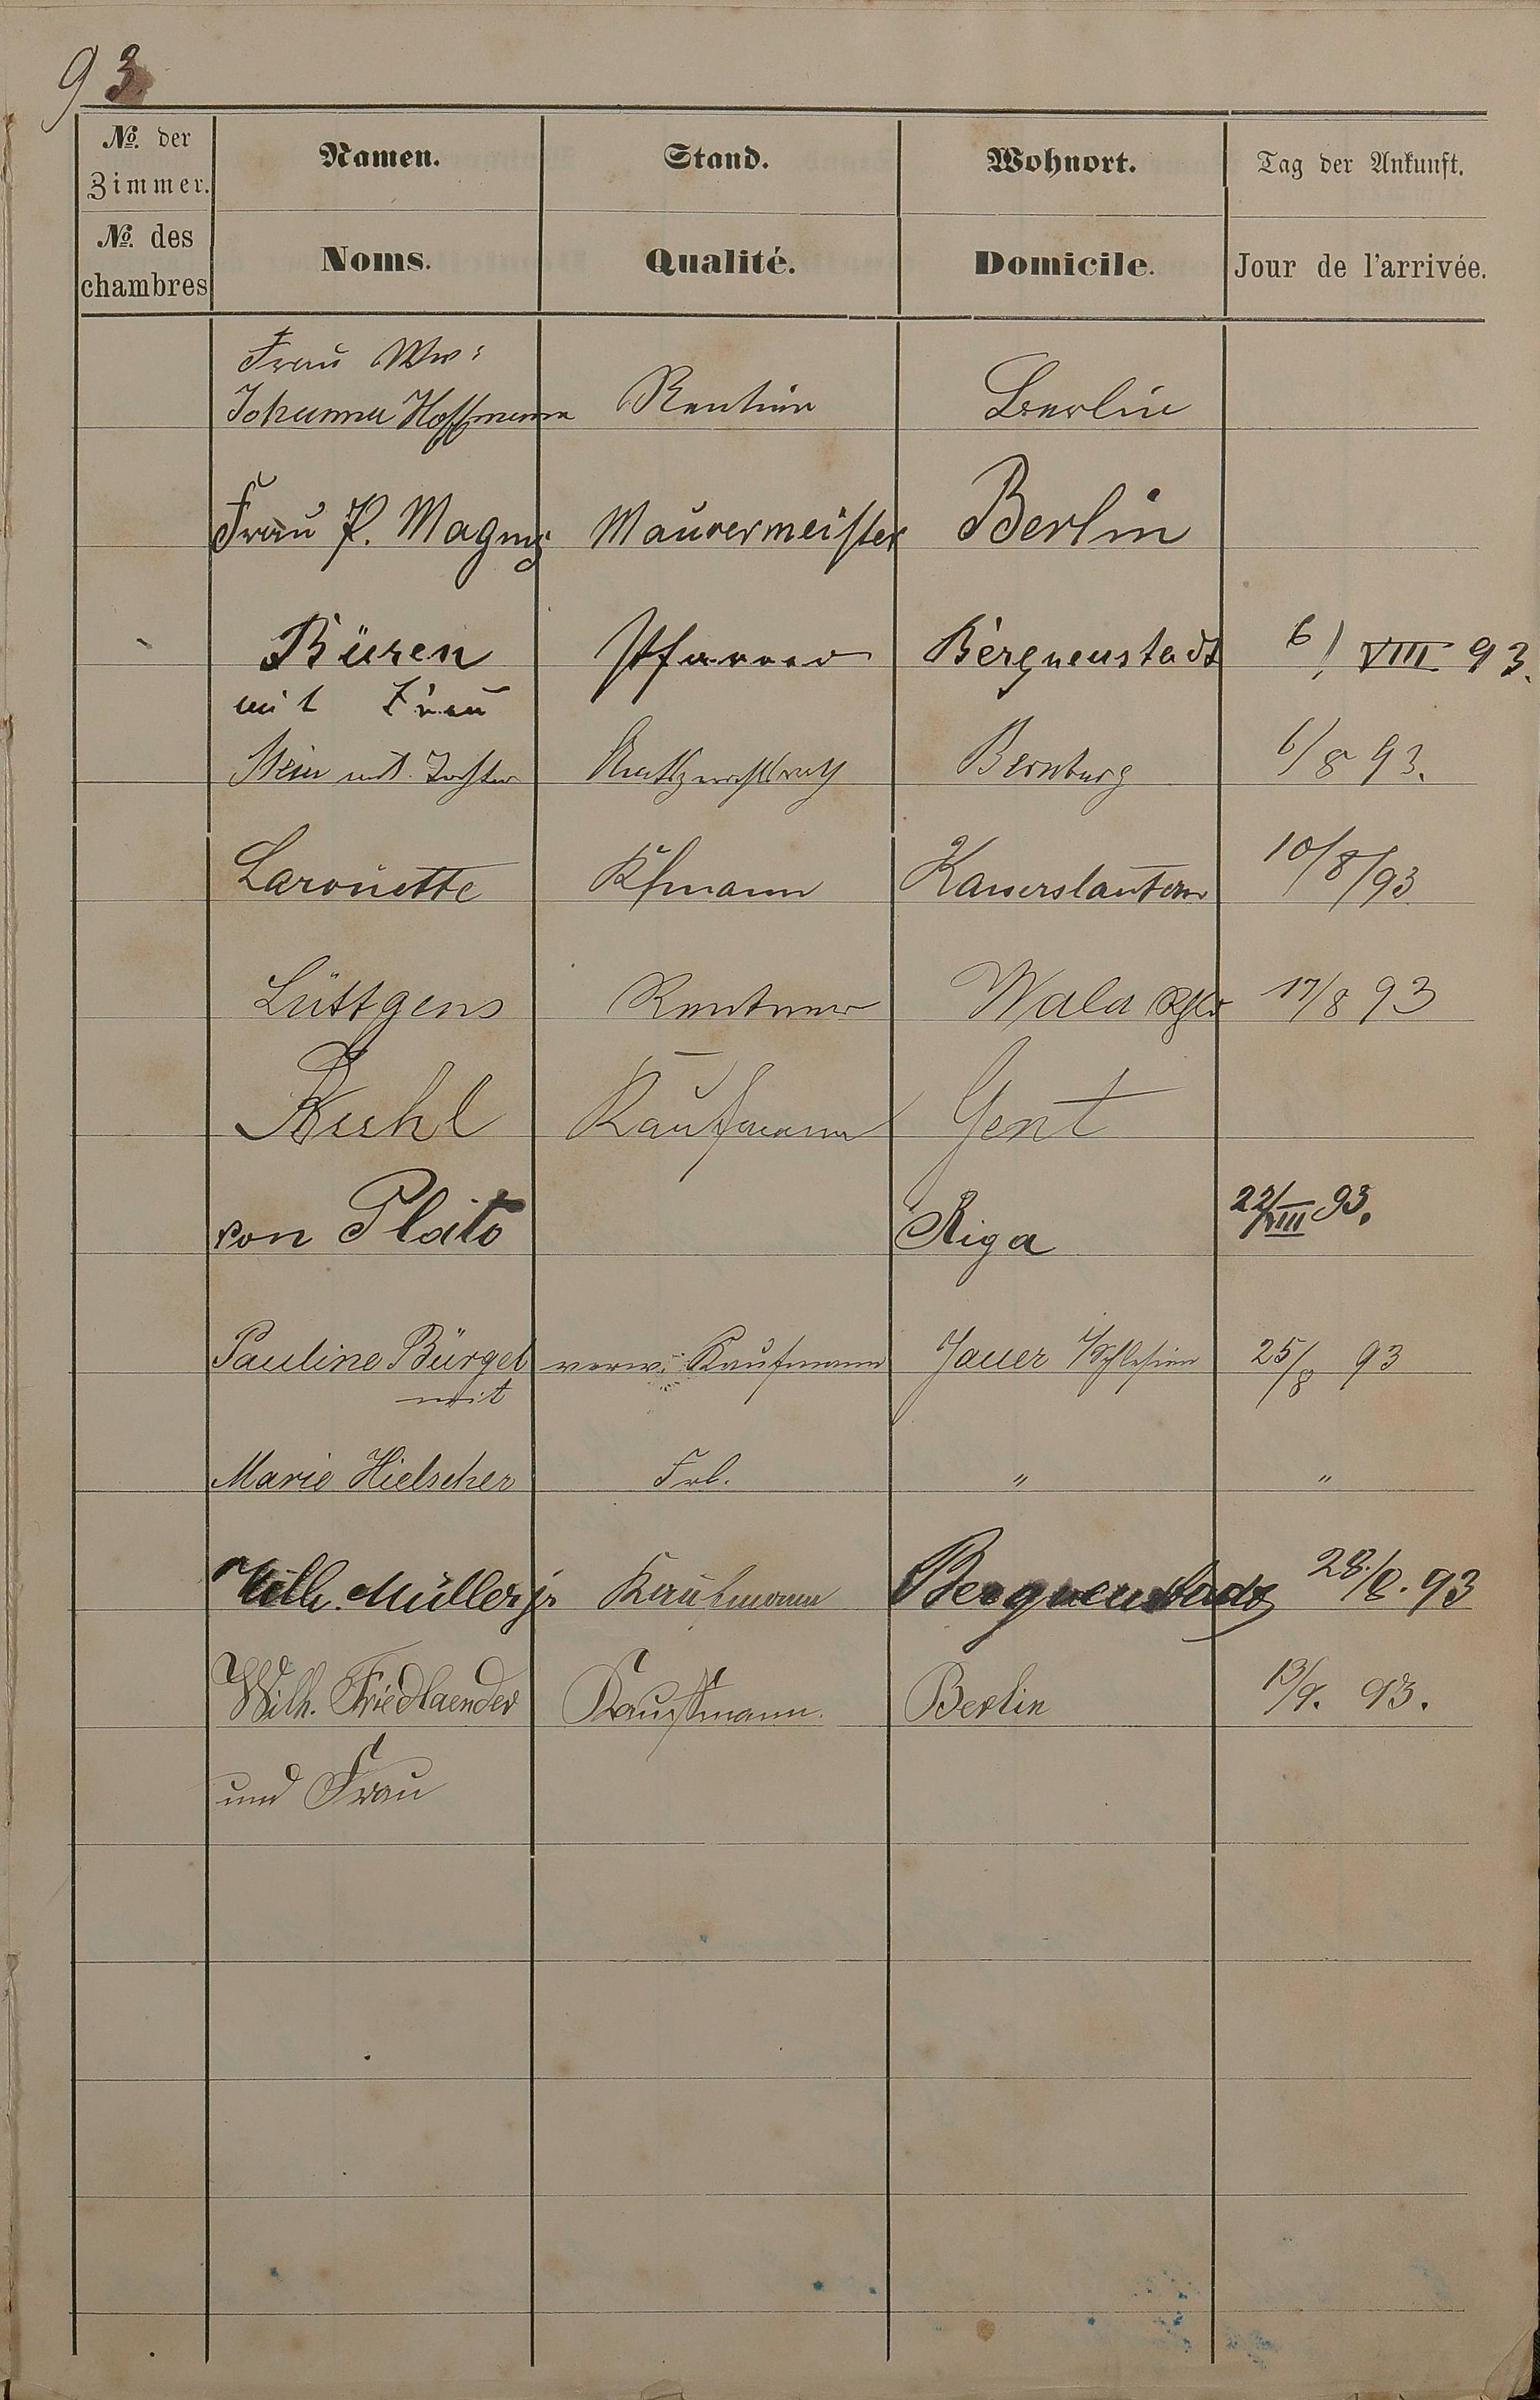 93
No. der Zimmer. Namen. Stand. Wohnort. Tag der Ankunft.
No. des chambres Noms. Qualité. Domicile. Jour de l'arrivée.
Frau Ww:
Johanna Hoffmann Rentiere Berlin
Frau P. Magnus Maurermeister Berlin
Büren Pfarrer Bergneustadt 6/VIII 93.
mit Frau
mit Tochter Bernburg 6/8 93.
Larouette Kfmann Kaiserslautern 10/8/93
Lüttgens Rentner 17/8 93
Kuhl Kaufmann Gent
von Plato Riga 22/VIII 93.
Pauline Bürgel verw. Kaufmann Jauer i/Schlesien 25/8 93
mit
Marie Hielscher Frl. " "
Wilh. Müller jr Kaufmann Bergneustadt 28./8. 93
Wilh. Friedlaender Kauffmann. Berlin 13/9. 93.
und Frau